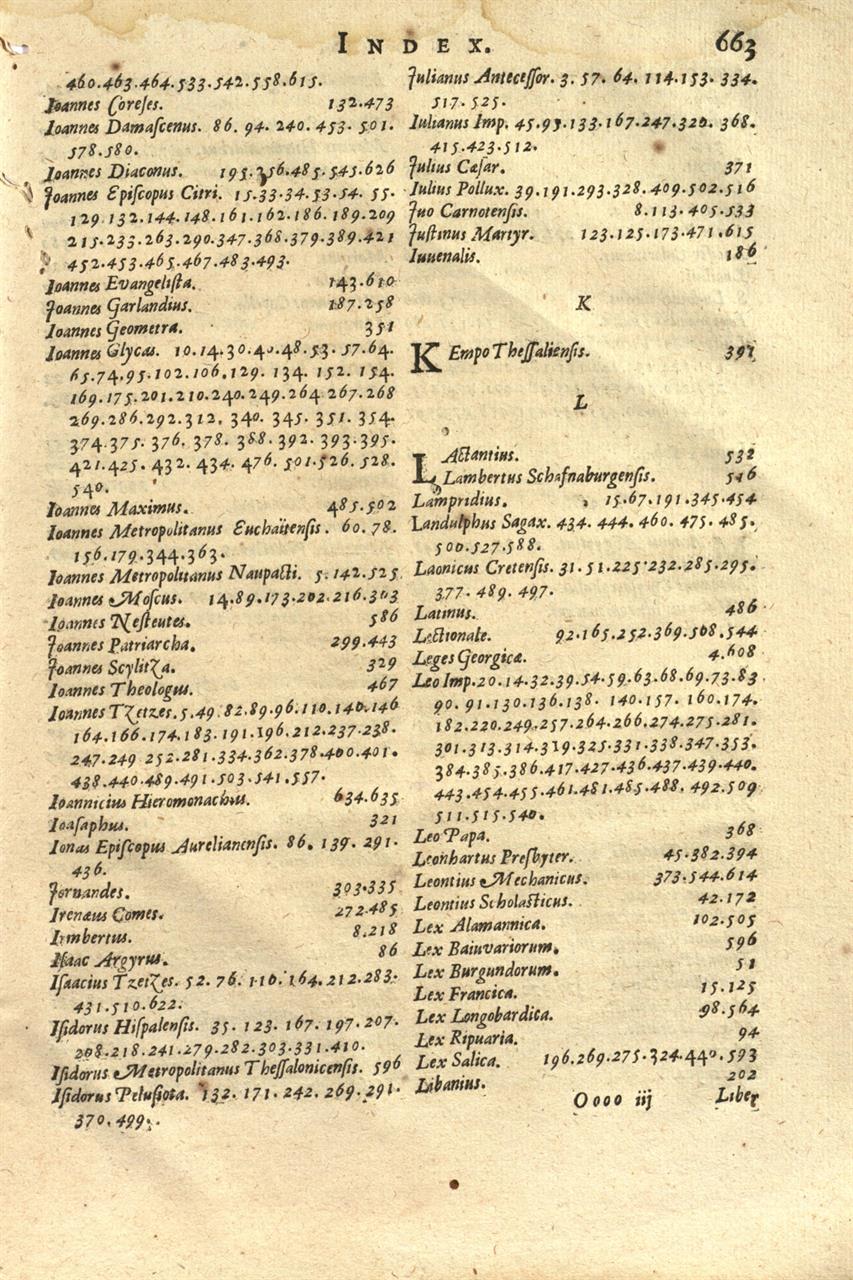 INDEX. 663
460.463.464.533.542.558.615.
Ioannes Coreses. 132.473
Ioannes Damascenus. 86. 94. 240. 453. 501.
578.580.
Ioannes Diaconus. 195.356.485.545.626
Joannes Episcopus Citri. 15.33.34.53.54. 55.
129.132.144.148.161.162.186.189.209
215.233.263.290.347.368.379.389.421
452.453.465.467.483.493.
Ioannes Evangelista. 143.610
Joannes Garlandius. 187.258
Ioannes Geometra. 351
Ioannes Glycas. 10.14.30.40.48.53.57.64.
65.74.95.102.106.129. 134. 152. 154.
169.175.201.210.240.249.264 267.268
269.286.292.312. 340. 345. 351. 354.
374.375. 376. 378. 388. 392. 393.395.
421.425. 432. 434. 476. 501.526. 528.
540.
Ioannes Maximus. 485.502
Ioannes Metropolitanus Euchaïtensis. 60. 78.
156.179.344.363.
Ioannes Metropolitanus Naupacti. 5.142.525
Ioannes Moscus. 14.89.173.202.216.303
Ioannes Nesteutes. 586
Joannes Patriarcha. 299.443
Joannes Scylitza. 329
Ioannes Theologus. 467
Ioannes Tzetzes. 5.49.82.89.96.110.140.146
164.166.174.183.191.196.212.237.238.
247.249 252.281.334.362.378.400.401.
438.440.489.491.503.541.557.
Ioannicius Hieromonachus. 634.635
Ioasaphus. 321
Ionas Episcopus Aurelianensis. 86. 139. 291.
436.
Jornandes. 303.335
Irenæus Comes. 272.485
Irmbertus. 8.218
Isaac Argyrus. 86
Isaacius Tzetzes. 52. 76. 110. 164.212.283.
431.510.622.
Isidorus Hispalensis. 35. 123. 167. 197. 207.
208.218.241.279.282.303.331.410.
Isidorus Metropolitanus Thessalonicensis. 596
Isidorus Pelusiota. 132. 171. 242. 269. 291.
370.499.
Julianus Antecessor. 3. 57. 64. 114.153. 334.
517. 525.
Iulianus Imp. 45.93.133.167.247.320. 368.
415.423.512.
Julius Cæsar. 371
Iulius Pollux. 39.191.293.328.409.502.516
Juo Carnotensis. 8.113.405.533
Justinus Martyr. 123.125.173.471.615
Iuuenalis. 186
K
KEmpo Thessaliensis. 391
L
LActantius. 532
Lambertus Schafnaburgensis. 516
Lampridius. 15.67.191.345.454
Landulphus Sagax. 434. 444. 460. 475. 485.
500.527.588.
Laonicus Cretensis. 31.51.225.232.285.295.
377. 489. 497.
Latinus. 486
Lectionale. 92.165.252.369.508.544
Leges Georgicæ. 4.608
Leo Imp. 20.14.32.39.54.59.63.68.69.73.83
90. 91.130.136.138. 140.157. 160.174.
182.220.249.257.264.266.274.275.281.
301.313.314.319.325.331.338.347.353.
384.385.386.417.427.436.437.439.440.
443.454.455.461.481.485.488. 492.509
511.515.540.
Leo Papa. 368
Leonhartus Presbyter. 45.382.394
Leontius Mechanicus. 373.544.614
Leontius Scholasticus. 42.172
Lex Alamannica. 102.505
Lex Baiuvariorum. 596
Lex Burgundorum. 51
Lex Francica. 15.125
Lex Longobardica. 98.564
Lex Ripuaria. 94
Lex Salica. 196.269.275.324.440.593
Libanius. 202
Oooo iij Liber